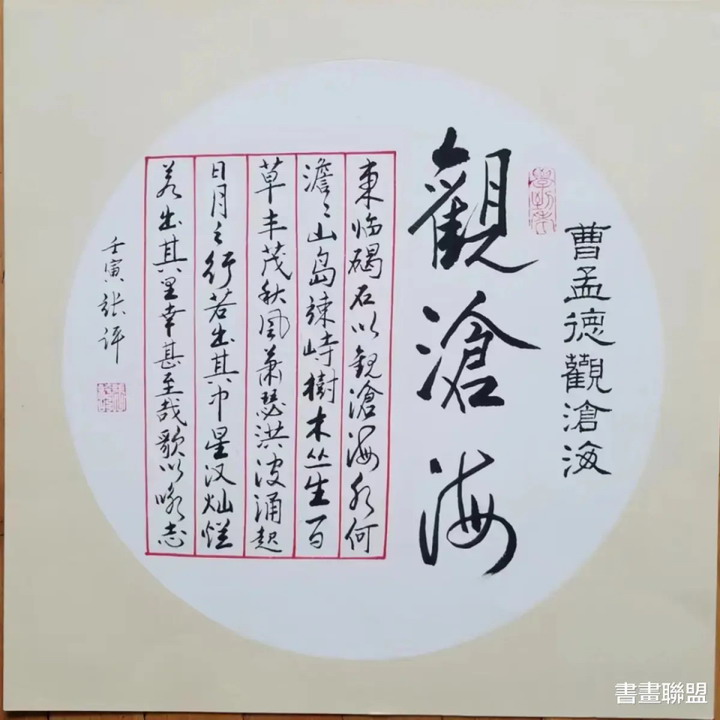 曹孟德觀滄海
觀滄海
東临碣石以觀滄海水何
澹〻山岛竦峙樹木丛生百
草丰茂秋風萧瑟洪波涌起
日月之行若出其中星汉灿烂
若出其里幸甚至哉歌以咏志
壬寅张评
書畫聯盟